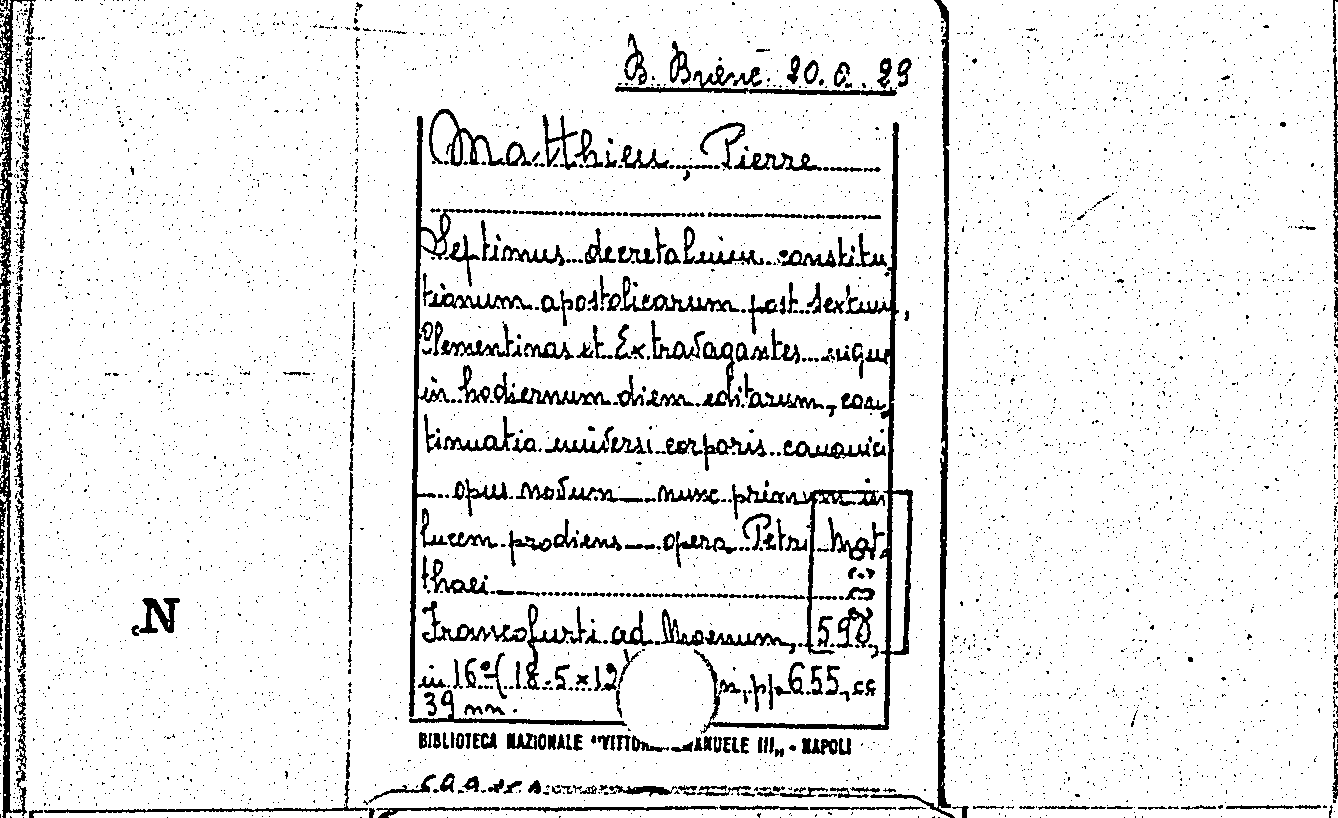 B. Branc. 20. C. 29
Matthieu, Pierre
Septimus decretalium constitu
tionum apostolicarum post sextum,
Clementinas et Extravagantes usque
in hodiernum diem editarum, con
tinuatio universi corporis canonici
opus novum nunc primum in
lucem prodiens opera Petri Mat.
thaei
Francofurti ad Moenum, 590,
in 16º (18.5 x 12 pp. 655, cc
39 nn.
BIBLIOTECA NAZIONALE "VITTOR ANUELE III" - NAPOLI
N